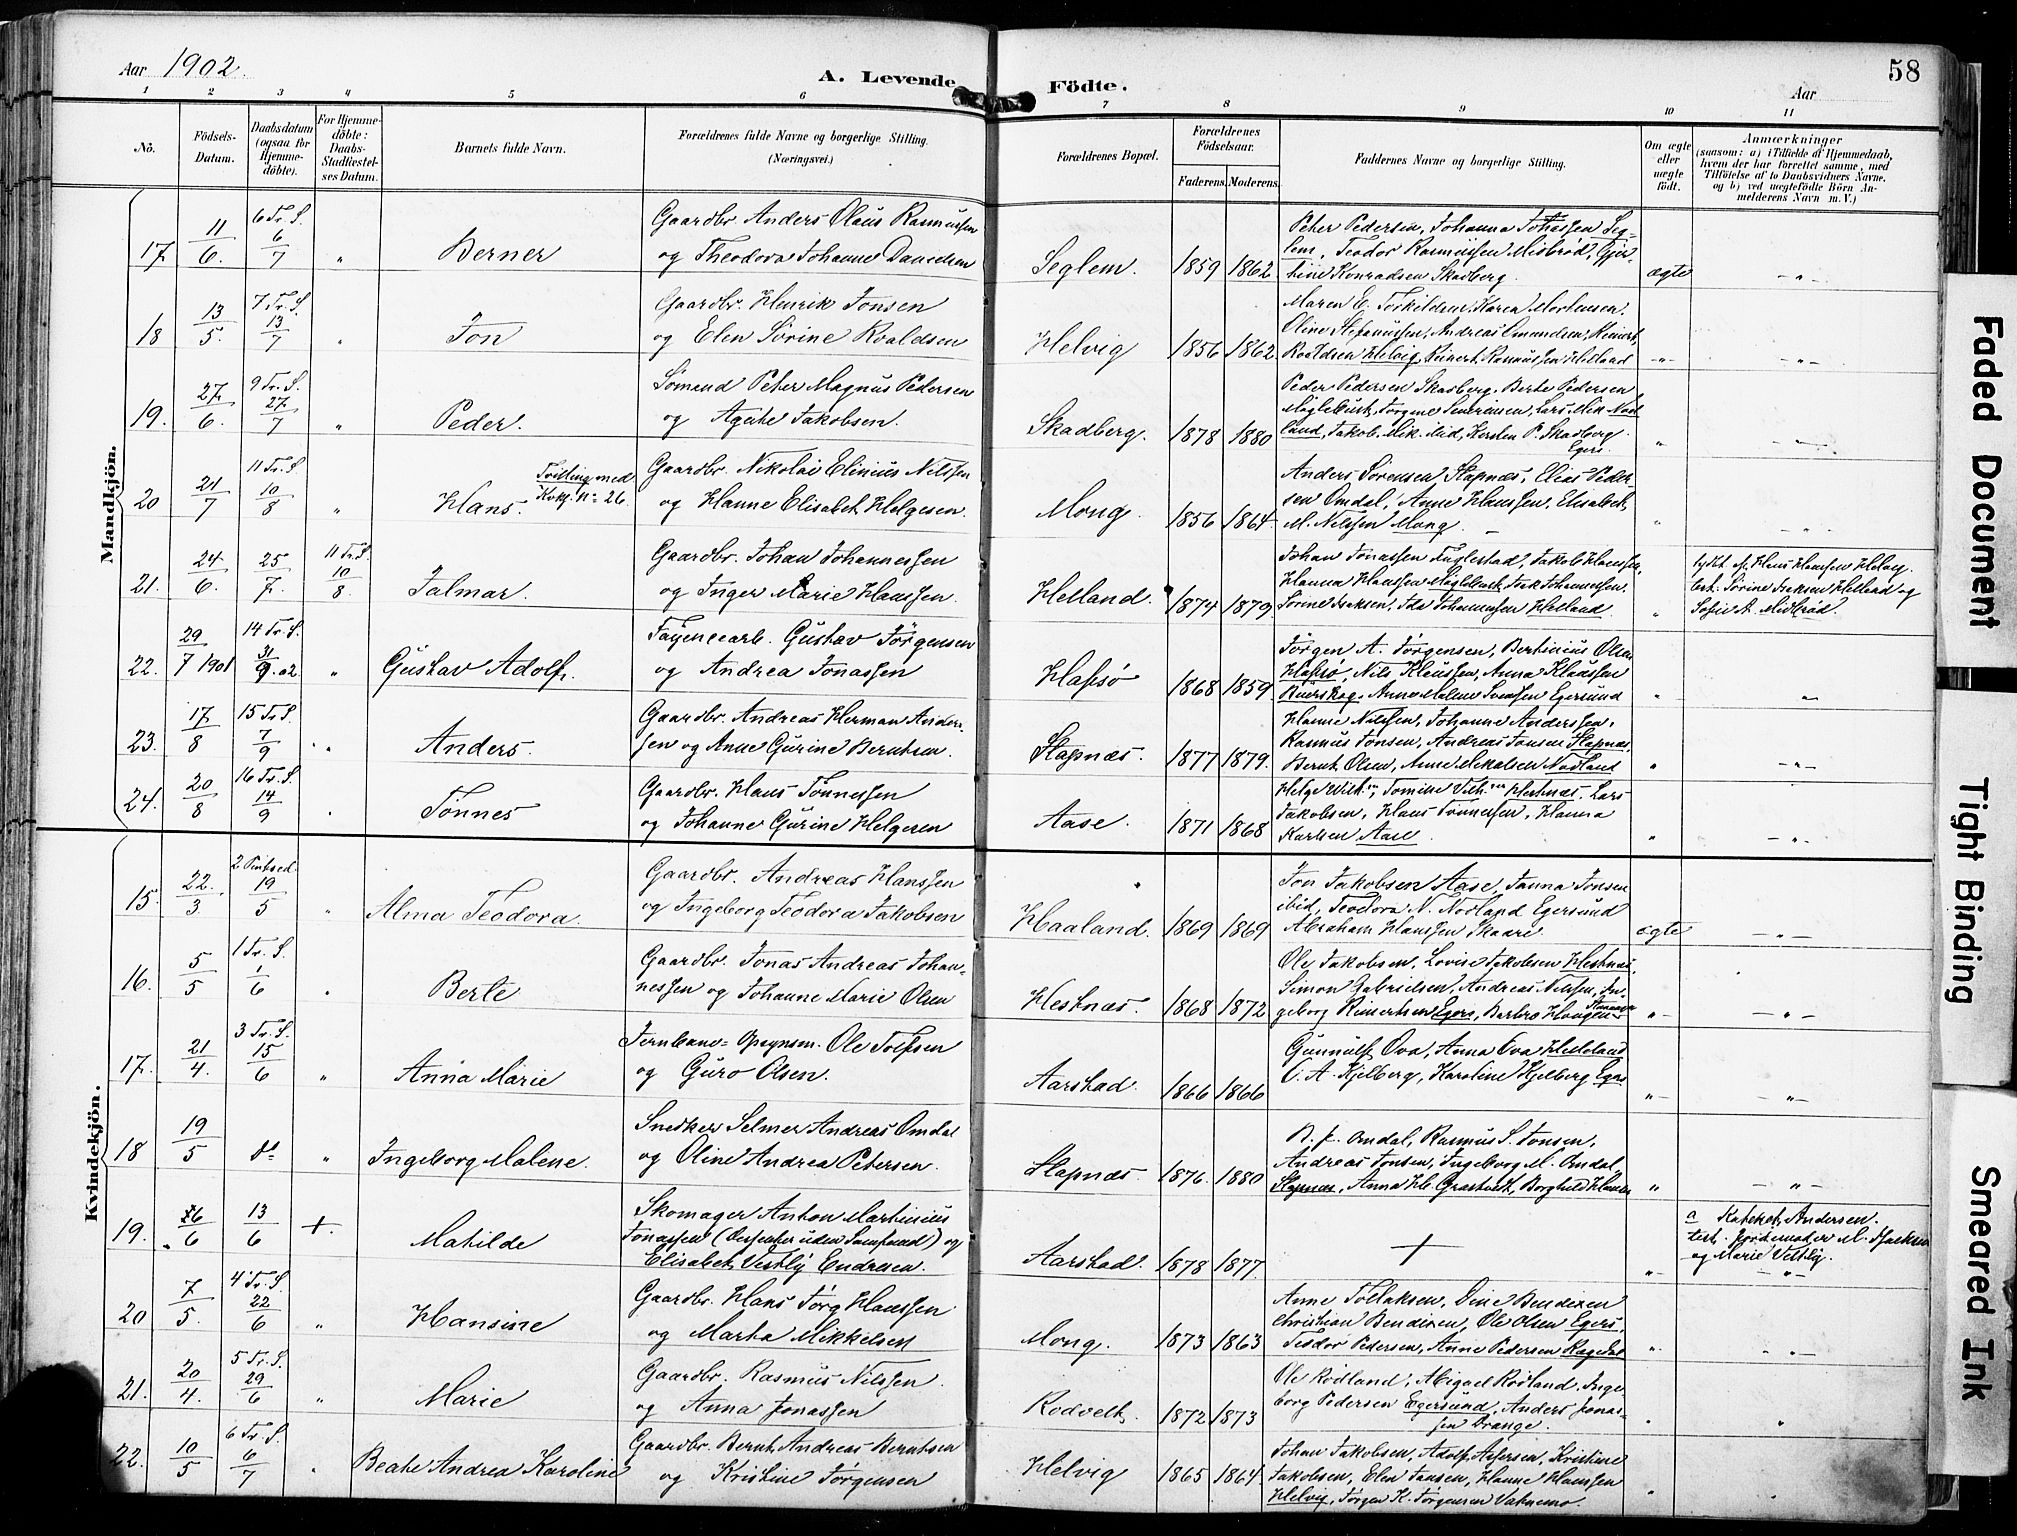 Aar 1902.
A. Levende Födte.
58
Aar
1 2 3 4 5 6 7 8 9 10 11
No.
Födsels-Datum.
Daabsdatum (ogsaa for Hjemmedöbte).
For Hjemmedöbte: Daabs-Stadfæstelses Datum.
Barnets fulde Navn.
Forældrenes fulde Navne og borgerlige Stilling. (Næringsvei.)
Forældrenes Bopæl.
Forældrenes Födselsaar.
Faderens. Moderens.
Faddernes Navne og borgerlige Stilling.
Om ægte eller uægte födt.
Anmærkninger
(saasom: a) i Tilfælde af Hjemmedaab, hvem der har forrettet samme, med Tilföielse af to Daabsvidners Navne, og b) ved uægtefödte Börn Anmelderens Navn m. V.)
Mandkjön.
17. 11/6. 6 Tr. S. 6/7 " Berner
Gaardbr. Anders Olaus Rasmussen
og Theodora Johanne Danielsen
Seglem. 1859 1862
Peter Pedersen, Johanna Tobiassen Seg-
lem, Teodor Rasmussen Misbrød, Gjer-
tine Konradsen Skadberg.
ægte -"-
18 13/5. 7 Tr. S. 13/7 " Jon
Gaardbr. Henrik Jonsen
og Elen Sørine Roaldsen
Helvig 1856 1862
Maren E. Torkildsen, Karen Mortensen,
Oline Stefanussen, Andreas Omundsen, Reinert
Roaldsen Helvig, Reinert Rasmussen Helland
-"- -"-
19. 27/6. 9 Tr. S. 27/7 " Peder.
Sømand Peter Magnus Pedersen
og Agathe Jakobsen.
Skadberg. 1878 1880
Peder Pedersen Skadberg. Berte Pedersen
Møglebust, Jørgine Severinsen, Lars Mik. Nod
land, Jakob Mik. ibid, Kersten P. Skadberg
Egers.
" -"-
20 21/7 11 Tr. S. 10/8 " Hans.
Tvilling med
Kvkj. nº 26
Gaardbr. Nikolai Elinius Nilssen
og Hanne Elisabet Helgesen.
Mong. 1856 1864
Anders Sørensen Stapnæs, Elias Peder-
sen Omdal, Anne Hanssen, Elisabet
M. Nilssen Mong.
" -"-
21. 24/6. 25/7. 11 Tr. S. 10/8. Jalmar.
Gaardbr. Johan Johannessen
og Inger Marie Hanssen.
Helland. 1874 1879
Johan Jonassen Fuglestad, Jakob Hanssen,
Hanna Hanssen Møglebust, Isak Johannessen,
Sørine Isaksen, Ida Johannessen Helland
" Hans Hanssen Helvig.
test: Sørine Isaksen Helland og
Sofie A. Midbrød.
22. 29/7 1901 14 Tr. S. 31/9.02 " Gustav Adolf.
Fayencearb. Gustav Jørgensen
og Andrea Jonassen
Hafsø 1868 1859
Jørgen A. Jørgensen, Bertinius Olsen
Hafsø, Nils Klaussen, Anna Klaussen
Ruerskog. Anna Malene Svensen Egersund
" "
23. 17/8 15 Tr. S. 7/9 " Anders.
Gaardbr. Andreas Herman Anders-
sen og Anne Gurine Berntsen.
Stapnæs. 1877 1879.
Hanne Nilssen, Johanne Anderssen,
Rasmus Jonsen, Andreas Jonsen Stapnæs,
Bernt Olsen, Anne Mikalsen Nodland
" -"-
24. 20/8 16 Tr. S. 14/9 Tønnes
Gaardbr. Hans Tønnessen
og Johanne Gurine Helgesen
Aase. 1871 1868
Helge Vilh., Tomine Vilh. Hestnæs. Lars
Jakobsen, Hans Tønnessen, Hanna
Karlsen Aase.
" -"-
Kvindekjön.
15. 22./3. 2 Pintsed. 19/5 " Alma Teodora.
Gaardbr. Andreas Hanssen
og Ingeborg Teodora Jakobsen
Haaland. 1869 1869
Jon Jakobsen Aase, Janna Jonsen
ibid, Teodora N. Nodland Egersund
Abraham Hanssen Skaare.
ægte -"-
16. 5/5 1 Tr. S. 1/6 " Berte
Gaardbr. Jonas Andreas Johan-
nessen og Johanne Marie Olsen
Hestnæs. 1868 1872
Ole Jakobsen, Lovise Jakobsen Hestnæs,
Simon Gabrielsen, Andreas Nilssen, In-
geborg Reinertsen Egers, Barbro Haugen
-"- -"-
17. 21/4. 3 Tr. S. 15/6 " Anna Marie
Jernbane-Opsynsm. Ole Tolfsen
og Guro Olsen.
Aarstad. 1866 1866
Gunnulf Ova, Anna Ova Helleland
C. A. Kjelberg, Karoline Kjelberg Egers
-"- -"-
18 19/5 do " Ingeborg Malene.
Snedker Selmer Andreas Omdal
og Oline Andrea Petersen.
Stapnæs. 1876. 1880
B. J. Omdal, Rasmus S. Jonsen,
Andreas Jonsen, Ingeborg M. Omdal,
Stapnæs, Anna H. Grastveit, Borghild Hansen
" -"-
19. 6/6 13/6 + Matilde
Skomager Anton Martinius
Jonassen (Dissenter uden Samfund) og
Elisabet Vestly Endresen.
Aarstad. 1878 1877.
+
-"- a Kateket Andersen.
test. Jordemoder M. Isaksen
og Marie Vestly.
-"-
20 7/5. 4 Tr. S. 22/6 " Hansine
Gaardbr. Hans Jørg Hanssen
og Marta Mikkelsen
Mong. 1873 1863
Anne Tollaksen, Dine Bendixen
Christian Bendixen, Ole Olsen Egers,
Teodor Pedersen, Anne Pedersen Ragstad
" "
21. 20/4. 5 Tr. S. 29/6 " Marie
Gaardbr. Rasmus Nilssen.
og Anna Jonassen
Rodvelt. 1872 1873
Ole Rødland, Abigael Rødland, Inge-
borg Pedersen Egersund, Anders Jonas-
sen Drange.
" "
22. 10/5 6 Tr. S. 6/7 " Beate Andrea Karoline
Gaardbr. Bernt Andreas Berntsen
og Kristine Jørgensen
Helvig 1865 1864
Johan Jakobsen, Adolf Asfersen, Kristine
Jakobsen, Elen Jansen, Hanne Hanssen
Helvig, Jørgen K. Jørgensen Vatnemo.
" "
Faded Document
Tight Binding
Smeared Ink